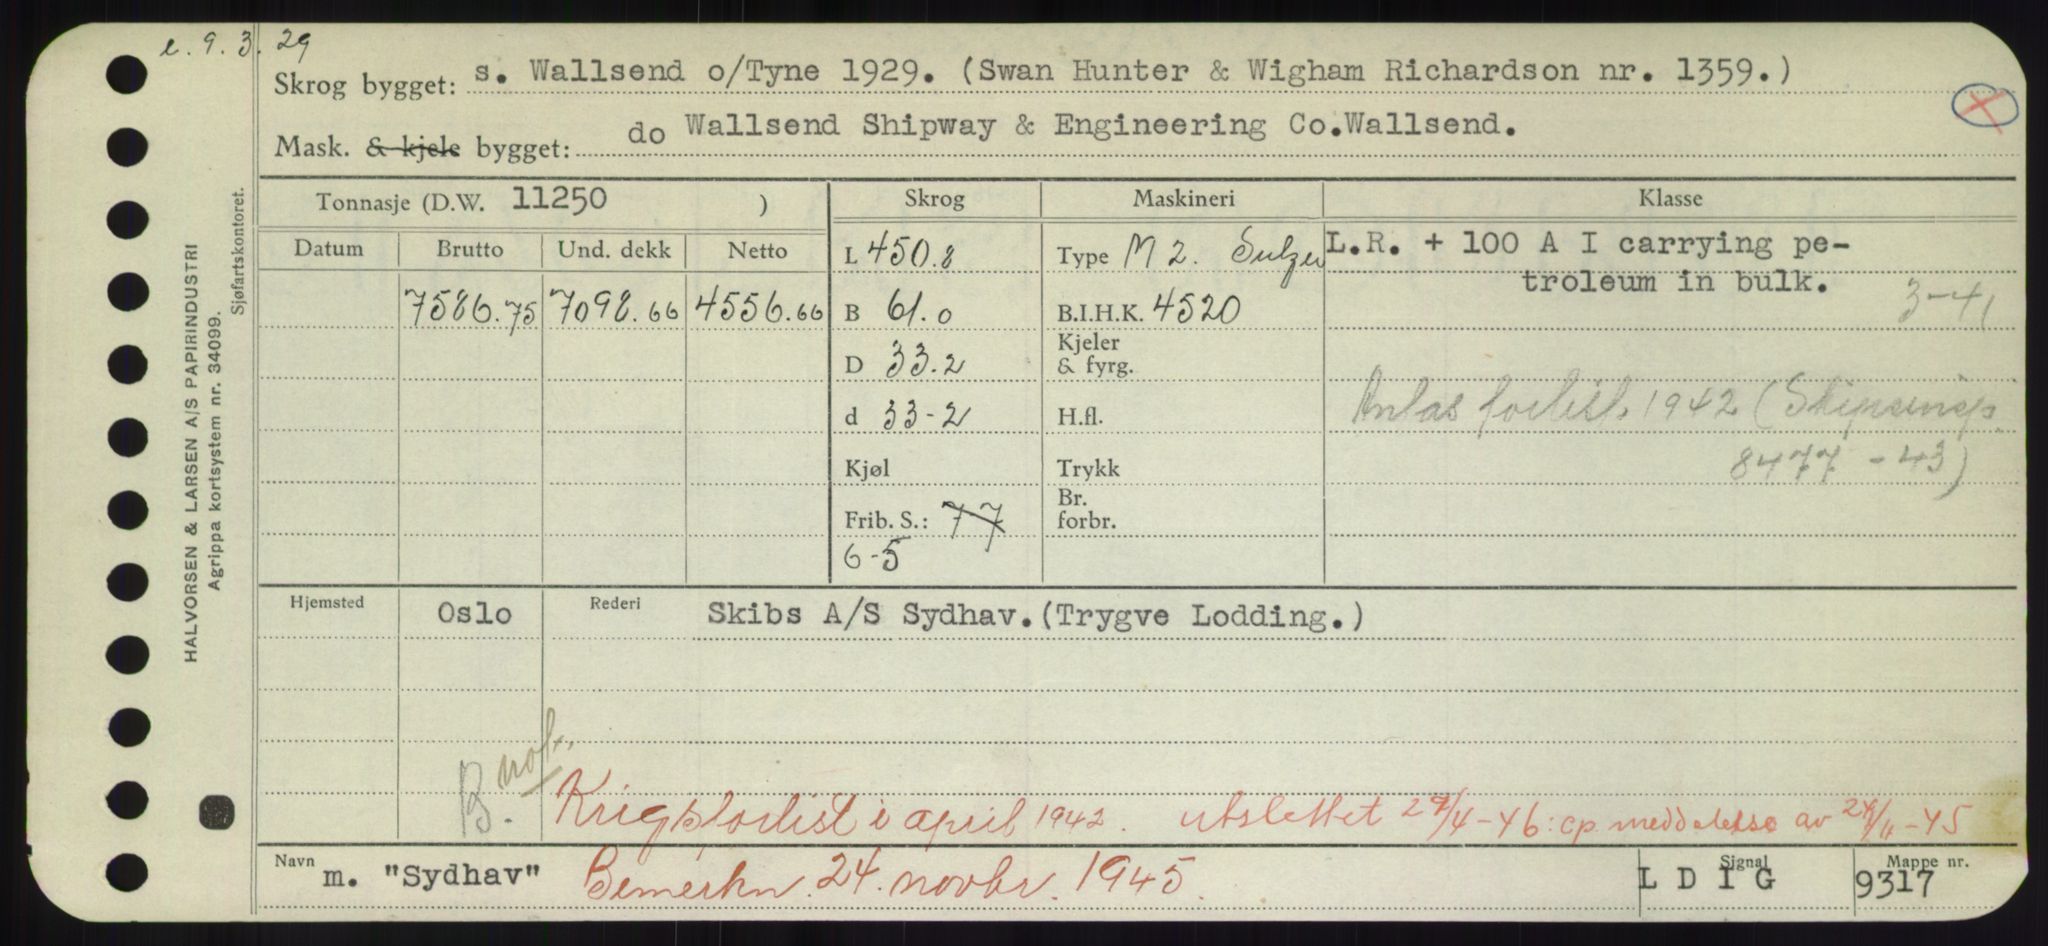 e. 9. 3. 29
Skrog bygget: s. Wallsend o/Tyne 1929. (Swan Hunter & Wigham Richardson nr. 1359.)
Mask. & kjele bygget: do Wallsend Shipway & Engineering Co.Wallsend.
HALVORSEN & LARSEN A/S PAPIRINDUSTRI
Agrippa kortsystem nr. 34099.
Sjøfartskontoret.
Tonnasje (D.W. 11250 ) Skrog Maskineri Klasse
Datum Brutto Und. dekk Netto L 450.8 Type M 2. Sulzer L.R. + 100 A I carrying pe-
troleum in bulk. 3-41
7586.75 7098.66 4556.66 B 61.0 B.I.H.K. 4520
D 33.2 Kjeler & fyrg.
Antas forlist. 1942 (Skipsinsp.
d 33-2 H.fl.
8477 - 43)
Kjøl Trykk
Frib. S.: 77 Br. forbr.
6-5
Hjemsted Oslo Rederi Skibs A/S Sydhav.(Trygve Lodding.)
B. not.
Krigsforlist i april 1942. utslettet 29/4-46: cp. meddelelse av 24/11-45
Navn m. "Sydhav" Bemerkn. 24. novbr. 1945. Signal L D I G Mappe nr. 9317